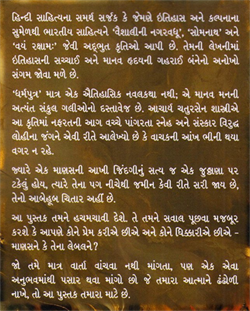 હિન્દી સાહિત્યના સમર્થ સર્જક કે જેમણે ઇતિહાસ અને કલ્પનાના
સુમેળથી ભારતીય સાહિત્યને 'વૈશાલીની નગરવધૂ', 'સોમનાથ' અને
'વયં રક્ષામઃ' જેવી અદ્ભુત કૃતિઓ આપી છે. તેમની લેખનીમાં
ઇતિહાસની સચ્ચાઈ અને માનવ હૃદયની ગહરાઈ બંનેનો અનોખો
સંગમ જોવા મળે છે.
'ધર્મપુત્ર' માત્ર એક ઐતિહાસિક નવલકથા નથી; એ માનવ મનની
અત્યંત સંકુલ ગલીઓનો દસ્તાવેજ છે. આચાર્ય ચતુરસેન શાસ્ત્રીએ
આ કૃતિમાં નફરતની આગ વચ્ચે પાંગરતા સ્નેહ અને સંસ્કાર વિરુદ્ધ
લોહીના જંગને એવી રીતે આલેખ્યો છે કે વાચકની આંખ ભીની થયા
વગર ન રહે.
જ્યારે એક માણસની આખી જિંદગીનું સત્ય જ એક જુઠ્ઠાણા પર
ટકેલું હોય, ત્યારે તેના પગ નીચેથી જમીન કેવી રીતે સરી જાય છે,
તેનો આબેહૂબ ચિતાર અહીં છે.
આ પુસ્તક તમને હચમચાવી દેશે. તે તમને સવાલ પૂછવા મજબૂર
કરશે કે આપણે કોને પ્રેમ કરીએ છીએ અને કોને ધિક્કારીએ છીએ -
માણસને કે તેના લેબલને?
જો તમે માત્ર વાર્તા વાંચવા નથી માંગતા, પણ એક એવા
અનુભવમાંથી પસાર થવા માંગો છો જે તમારા આત્માને ઢંઢોળી
નાખે, તો આ પુસ્તક તમારા માટે છે.